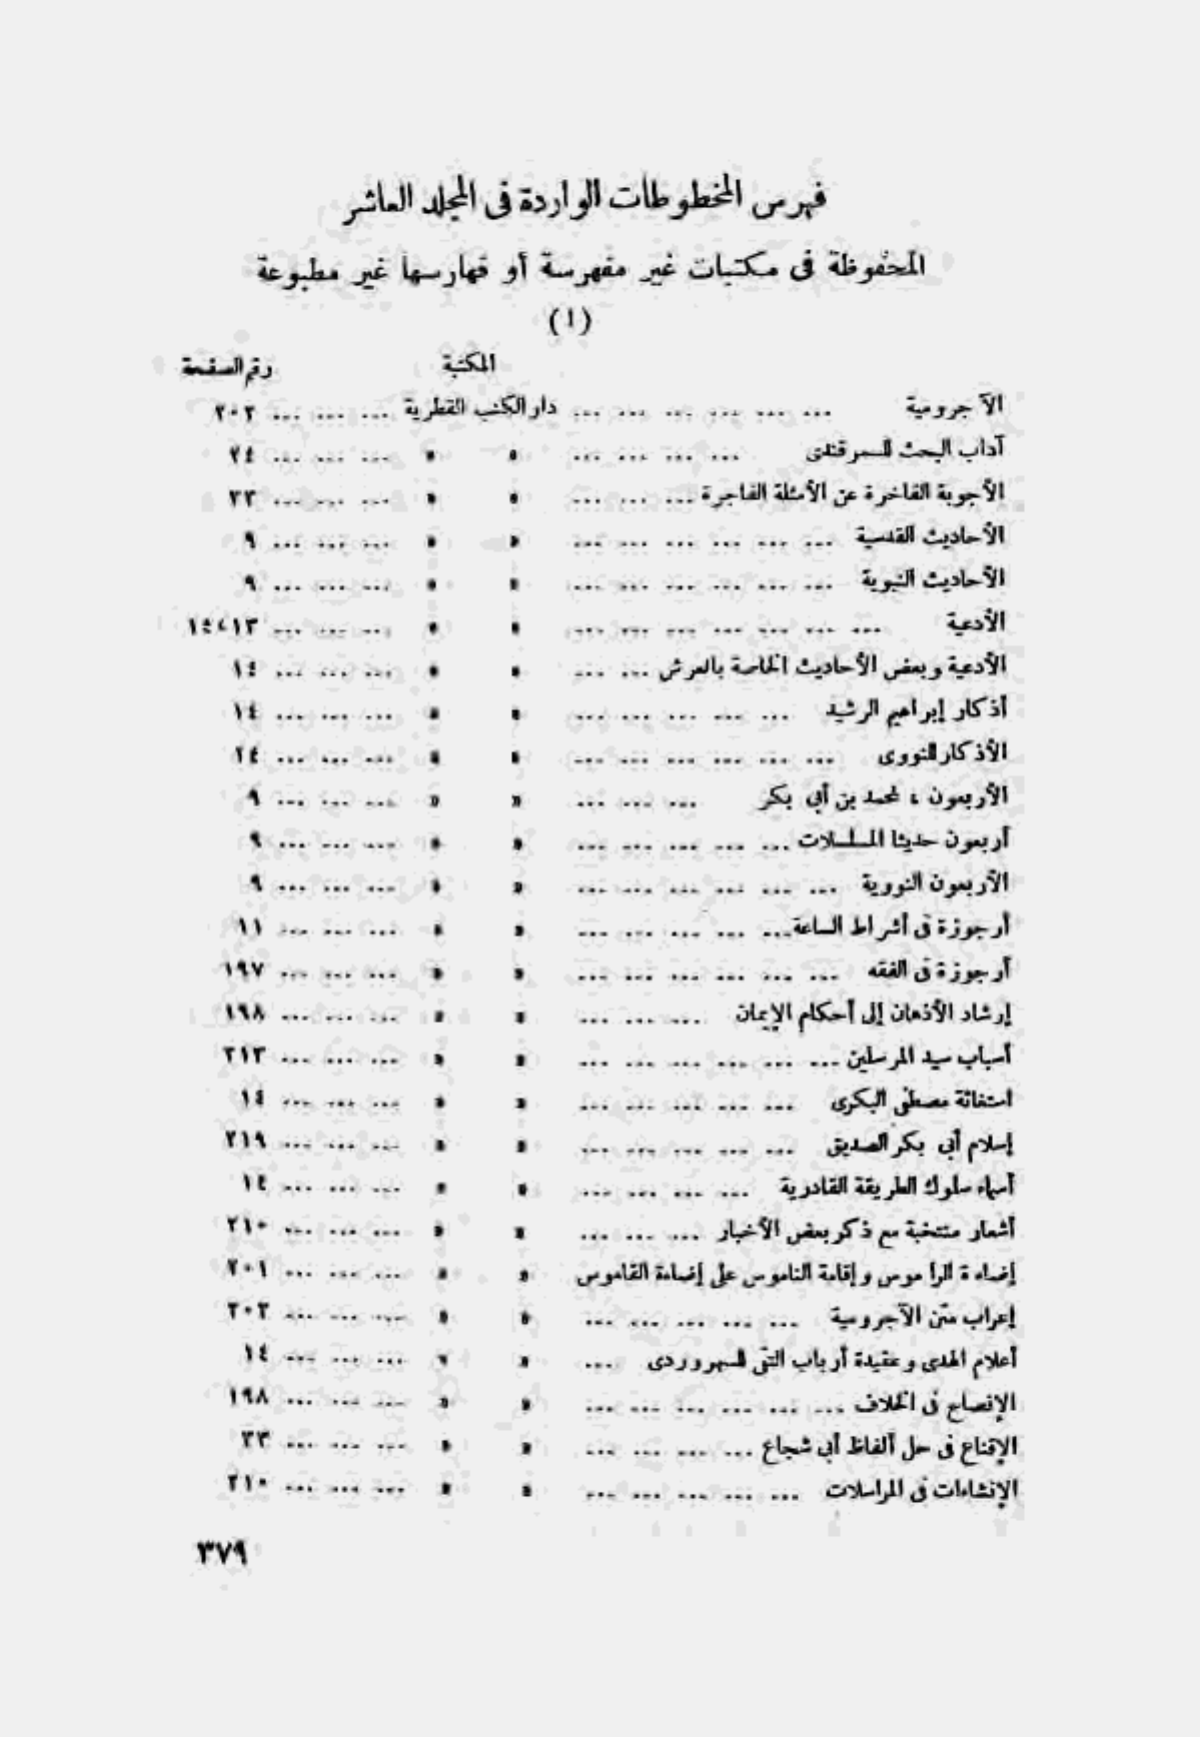 فهرس المخطوطات الواردة فى المجلد العاشر
المحفوظة فى مكتبات غير مفهرسة أو فهارسها غير مطبوعة
(١)
المكتبة رقم الصفحة
الآجرومية ... ... ... ... ... ... دار الكتب القطرية ... ... ... ٢٠٢
آداب البحث للسمرقندى ... ... ... ... » » ... ... ... ٢٤
الأجوبة الفاخرة عن الأسئلة الفاجرة ... ... ... » » ... ... ... ٢٣
الأحاديث القدسية ... ... ... ... ... ... » » ... ... ... ٩
الأحاديث النبوية ... ... ... ... ... ... » » ... ... ... ٩
الأدعية ... ... ... ... ... ... ... » » ... ... ... ١٣،١٤
الأدعية وبعض الأحاديث الخاصة بالعرش ... ... » » ... ... ... ١٤
أذكار إبراهيم الرشيد ... ... ... ... ... » » ... ... ... ١٤
الأذكار للنووى ... ... ... ... ... ... » » ... ... ... ١٤
الأربعون ، لمحمد بن أبى بكر ... ... ... » » ... ... ... ٩
أربعون حديثا المسلسلات ... ... ... ... ... » » ... ... ... ٩
الأربعون النووية ... ... ... ... ... ... » » ... ... ... ٩
أرجوزة فى أشراط الساعة ... ... ... ... ... » » ... ... ... ١١
أرجوزة فى الفقه ... ... ... ... ... ... » » ... ... ... ١٩٧
إرشاد الأذهان إلى أحكام الإيمان ... ... ... » » ... ... ... ١٩٨
أسباب سيد المرسلين ... ... ... ... ... ... » » ... ... ... ٢١٣
استغاثة مصطفى البكرى ... ... ... ... ... » » ... ... ... ١٤
إسلام أبى بكر الصديق ... ... ... ... ... » » ... ... ... ٢١٩
أسماء سلوك الطريقة القادرية ... ... ... ... » » ... ... ... ١٤
أشعار منتخبة مع ذكر بعض الأخبار ... ... ... » » ... ... ... ٢١٠
إضاءة الراموس وإفامة الناموس على إضاءة القاموس » » ... ... ... ٢٠١
إعراب متن الآجرومية ... ... ... ... ... » » ... ... ... ٢٠٢
أعلام الهدى وعقيدة أرباب التقى للسهروردى ... » » ... ... ... ١٤
الإفصاح فى الخلاف ... ... ... ... ... ... » » ... ... ... ١٩٨
الإقناع فى حل ألفاظ أبى شجاع ... ... ... ... » » ... ... ... ٢٣
الإنشاءات فى المراسلات ... ... ... ... ... » » ... ... ... ٢١٠
٣٧٩